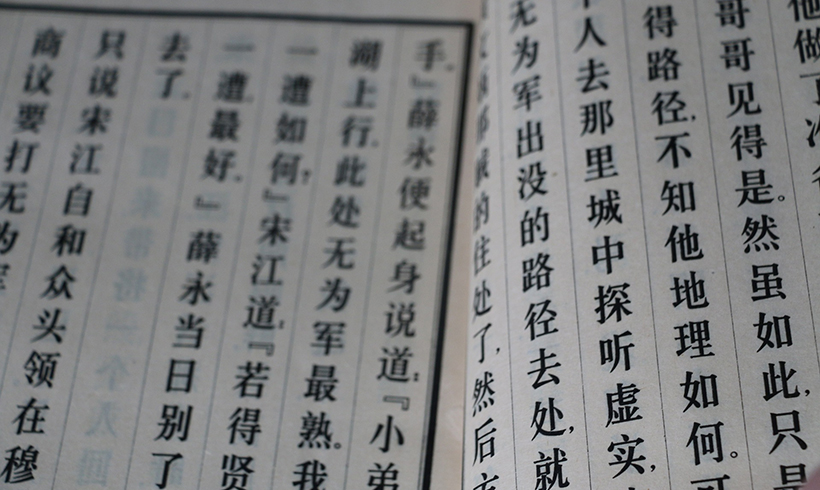 他做
哥哥见得是。然虽如此,只是
得路径,不知他地理如何。可
人去那里城中探听虚实,
无为军出没的路径去处,就
的住处了,然后
手。』薛永便起身说道:『小弟
湖上行。此处无为军最熟。我
一遭如何?』宋江道:『若得贤
一遭,最好。』薛永当日别了
去了。
只说宋江自和众头领在穆
商议要打无为军